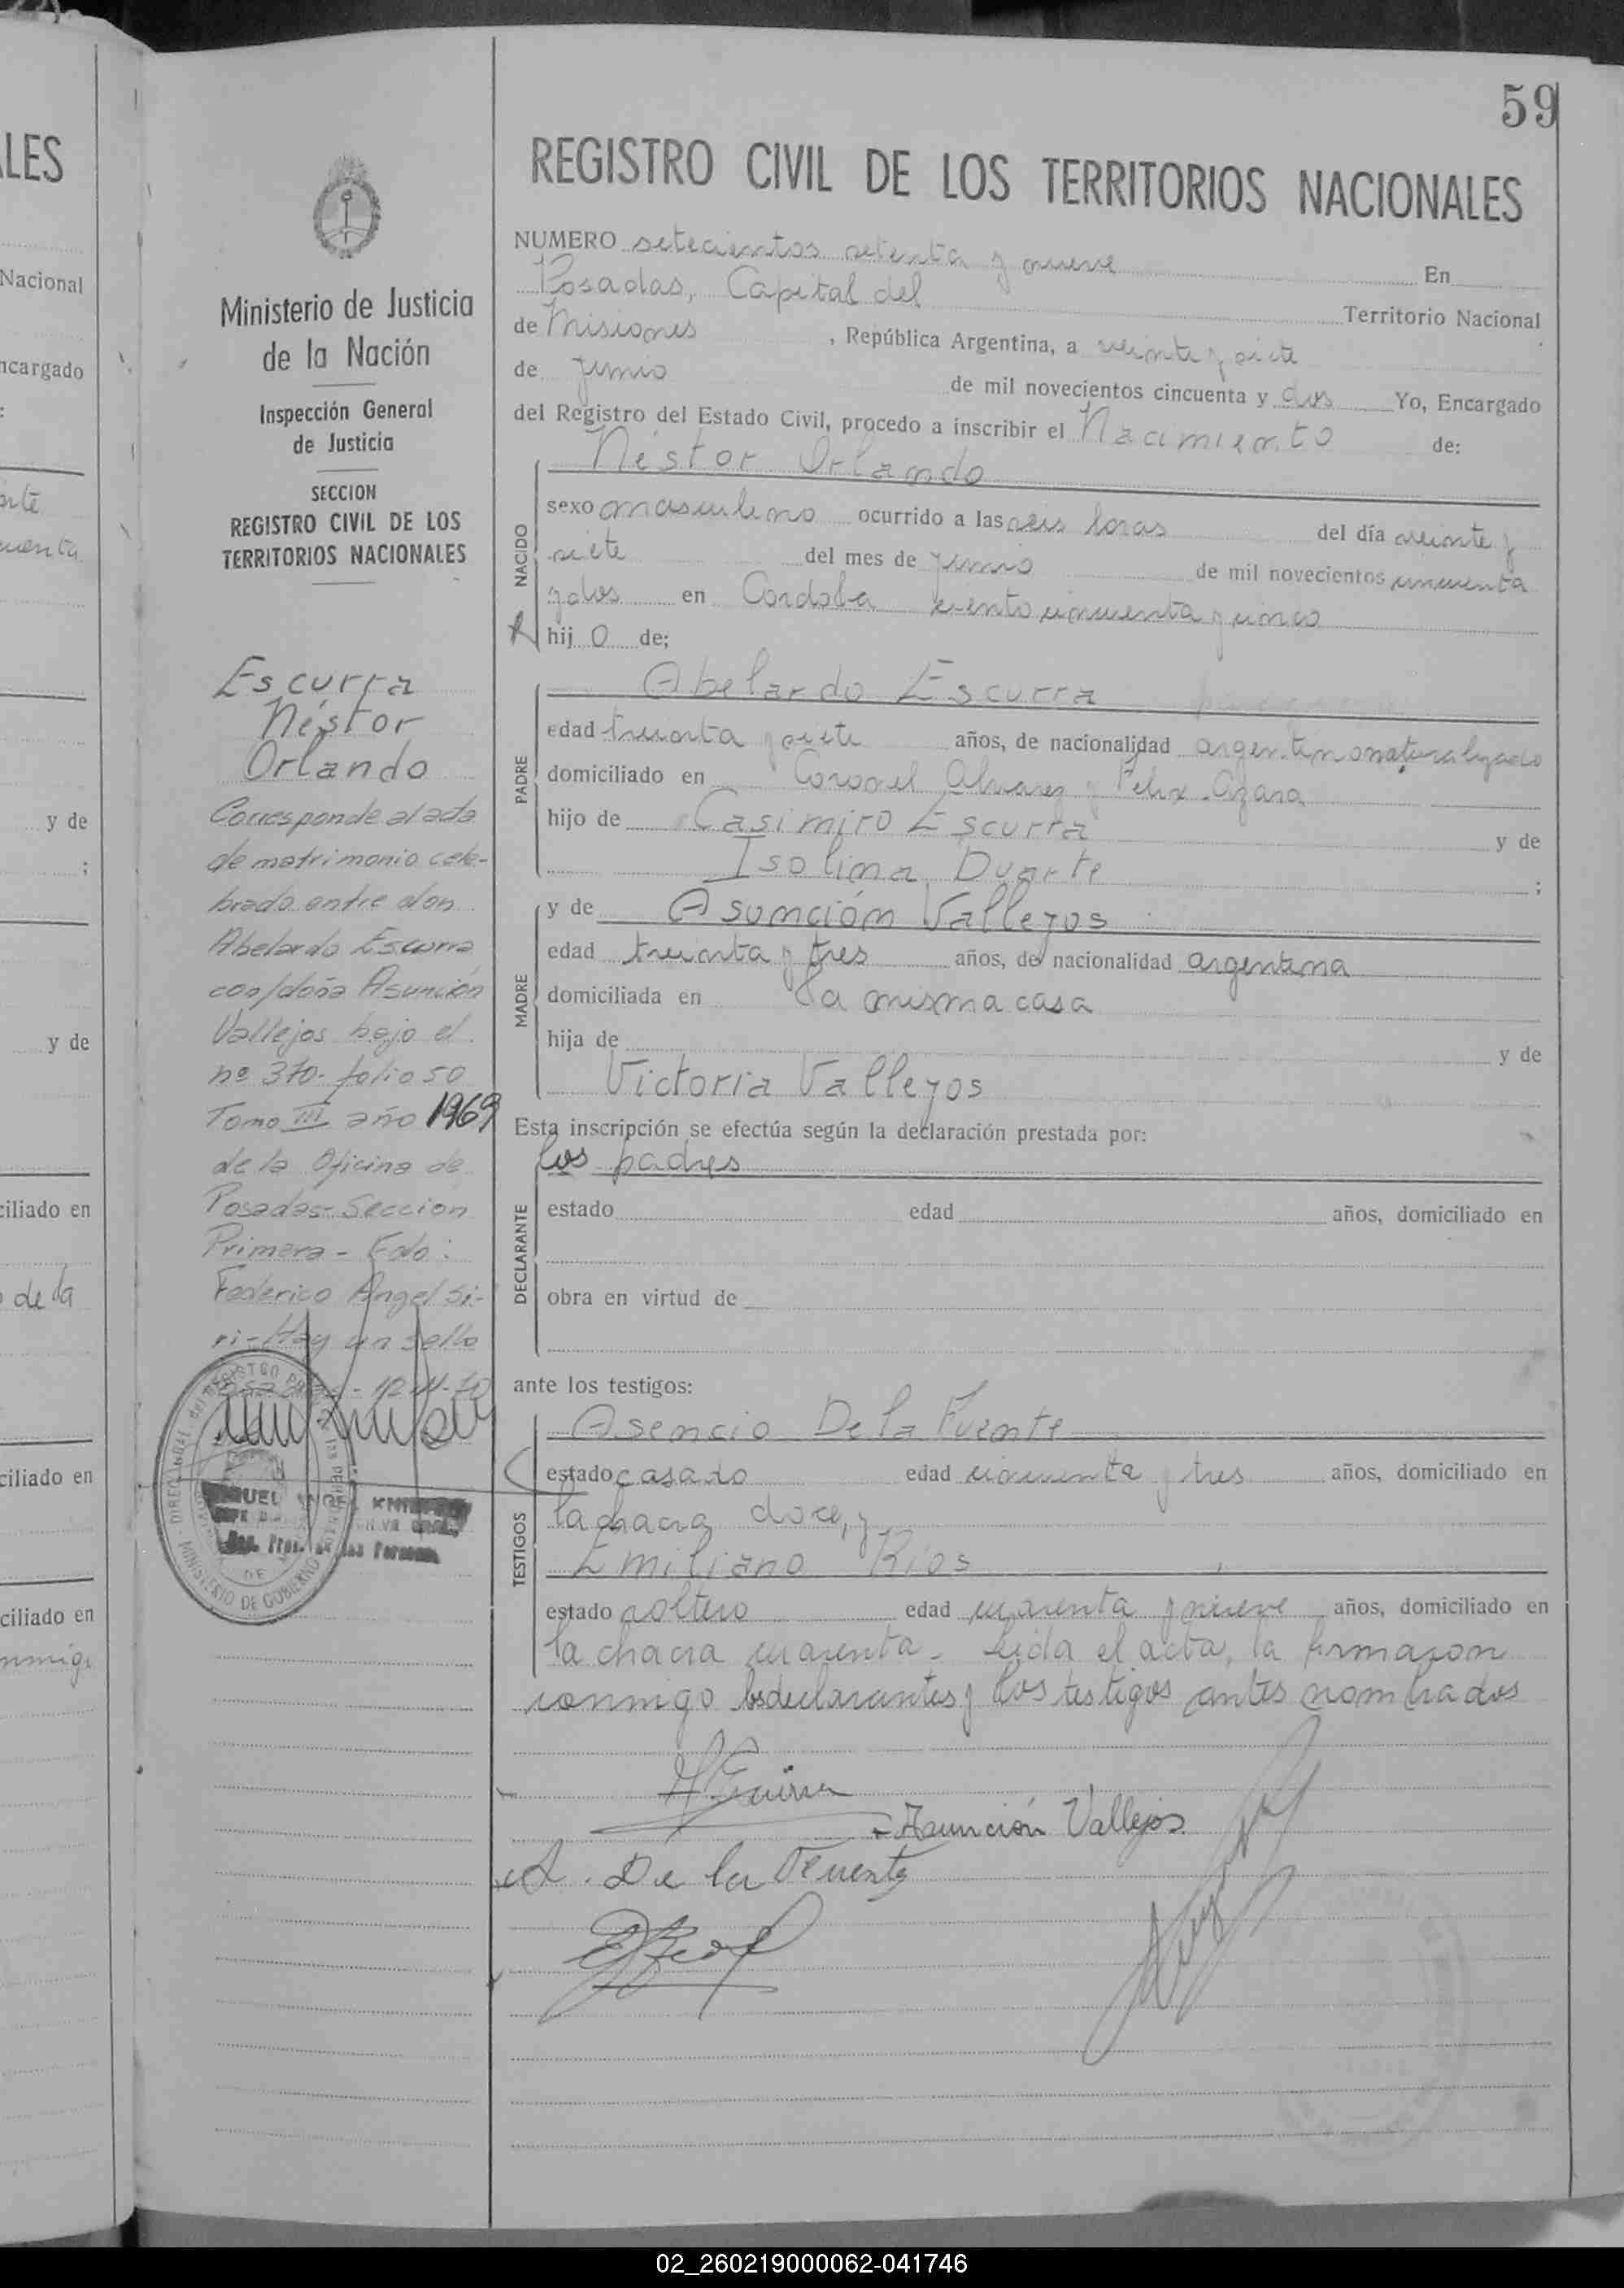 59
REGISTRO CIVIL DE LOS TERRITORIOS NACIONALES
NUMERO setecientos setenta y nueve En
Posadas, Capital del Territorio Nacional
de Misiones, República Argentina, a veinte y siete
de Junio de mil novecientos cincuenta y dos Yo, Encargado
del Registro del Estado Civil, procedo a inscribir el Nacimiento de:
Néstor Orlando
NACIDO
sexo masculino ocurrido a las seis horas del día veinte y
siete del mes de Junio de mil novecientos cincuenta
y dos en Cordoba ciento cincuenta y cinco
hijo de;
PADRE
Abelardo Escurra
edad treinta y siete años, de nacionalidad argentino naturalizado
domiciliado en Coronel Alvarez y Felix Azara
hijo de Casimiro Escurra y de
Isolina Duarte;
MADRE
y de Asunción Vallejos
edad treinta y tres años, de nacionalidad argentina
domiciliada en la misma casa
hija de y de
Victoria Vallejos
Esta inscripción se efectúa según la declaración prestada por:
los padres
DECLARANTE
estado edad años, domiciliado en
obra en virtud de
ante los testigos:
TESTIGOS
Asencio De la Fuente
estado casado edad cincuenta y tres años, domiciliado en
la chacra doce, y
Emiliano Rios
estado soltero edad cuarenta y nueve años, domiciliado en
la chacra cuarenta. Leida el acta, la firmaron
conmigo los declarantes y los testigos antes nombrados
Asunción Vallejos
A. De la Fuente
Ministerio de Justicia
de la Nación
Inspección General
de Justicia
SECCION
REGISTRO CIVIL DE LOS
TERRITORIOS NACIONALES
Escurra
Néstor
Orlando
Corresponde al acta
de matrimonio cele-
brado entre don
Abelardo Escurra
con/doña Asunción
Vallejos bajo el
nº 370- folio 50
Tomo III año 1969
de la Oficina de
Posadas- Seccion
Primera - Fdo:
Federico Angel Si-
ri- Hay un sello
MINISTERIO DE GOBIERNO
LES
Nacional
ncargado
y de
;
y de
ciliado en
de la
ciliado en
ciliado en
02_260219000062-041746